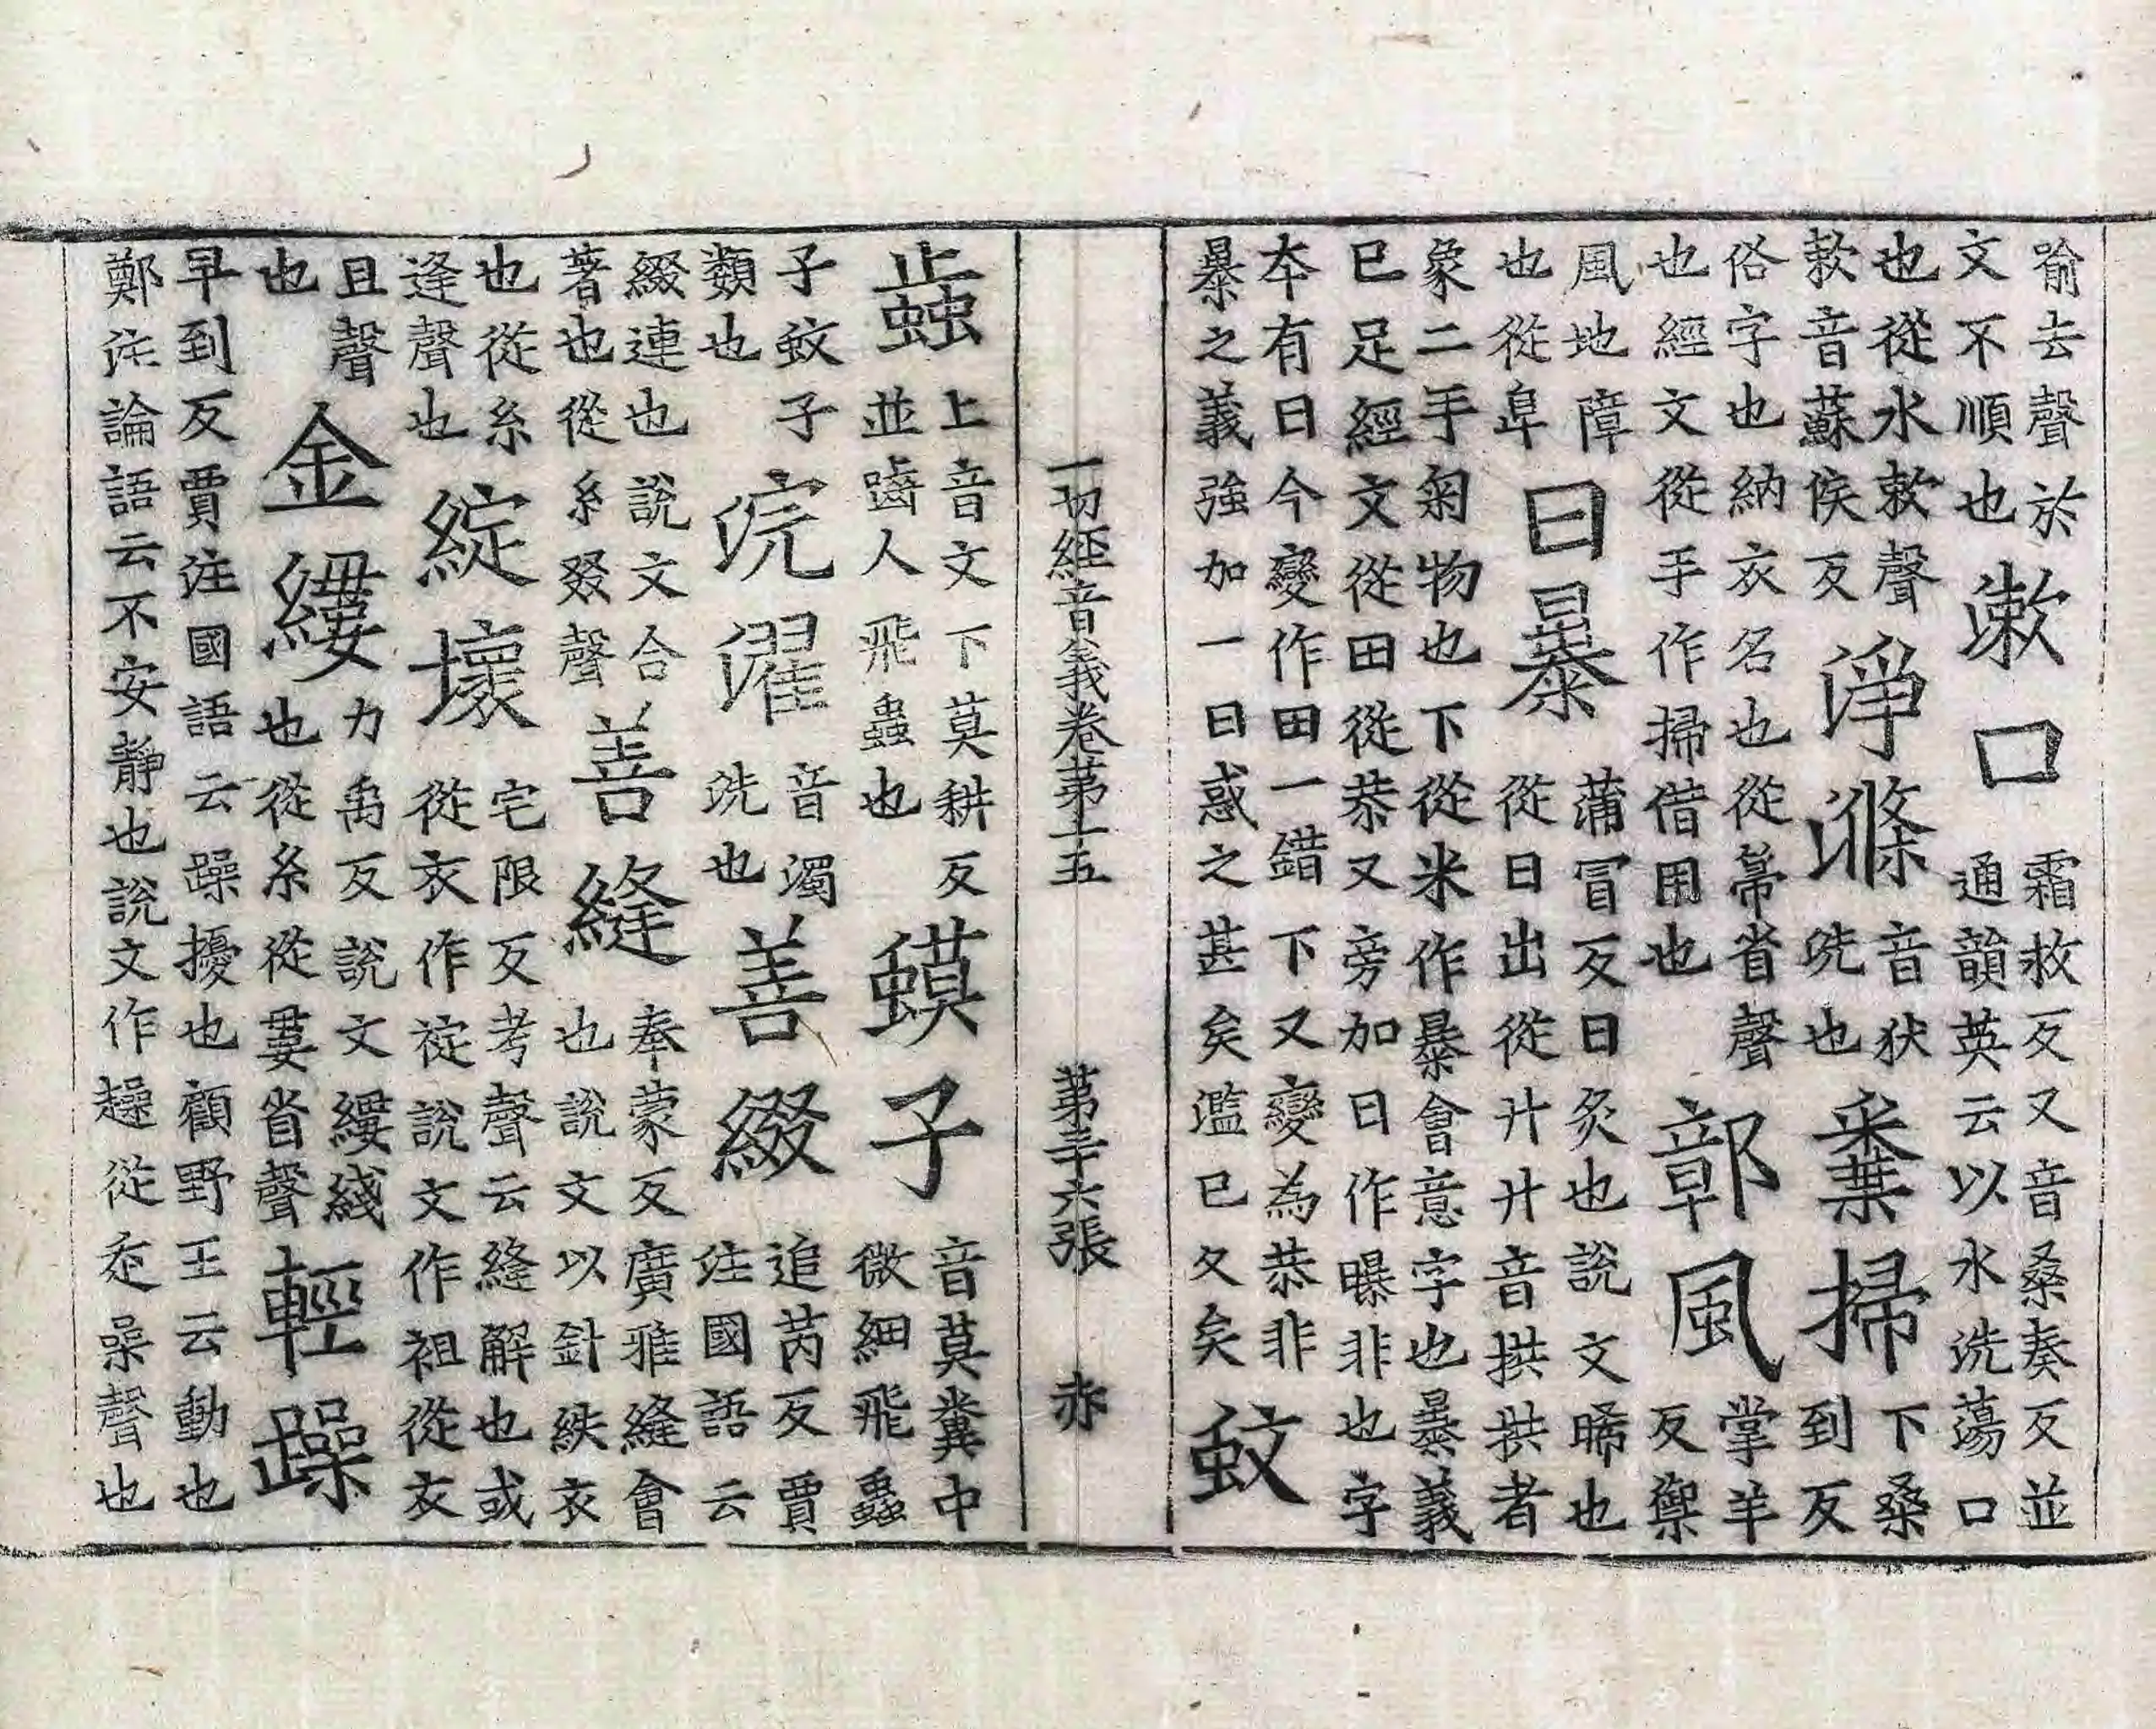 喻去聲於文不順也漱口霜救反又音桑奏反並通韻英云以水洗蕩口
也從水欶聲欶音蘇侯反淨滌音狄洗也糞掃下桑到反
俗字也納衣名也從帚省聲也經文從手作掃借用也鄣風掌羊反禦
風地障也從阜日暴蒲冒反日炙也說文晞也從日出從廾廾音拱拱者
象二手匊物也下從米作暴會意字也暴義已足經文從田從恭又旁加日作曝非也字
本有日今變作田一錯下又變為恭非暴之義強加一日惑之甚矣濫已久矣蚊
一切經音義卷第十五 第二十六張 赤
蝱上音文下莫耕反並齧人飛蟲也蟆子音莫糞中微細飛蟲
子蚊子類也浣濯音濁洗也善綴追芮反賈注國語云
綴連也說文合著也從糸叕聲善縫奉蒙反廣雅縫會也說文以針紩衣
也從糸逢聲也綻壞宅限反考聲云縫解也或從衣作䘺說文作袒從衣
且聲也金縷力禹反說文縷綫也從糸從婁省聲輕躁
早到反賈注國語云躁擾也顧野王云動也鄭注論語云不安靜也說文作趮從走喿聲也